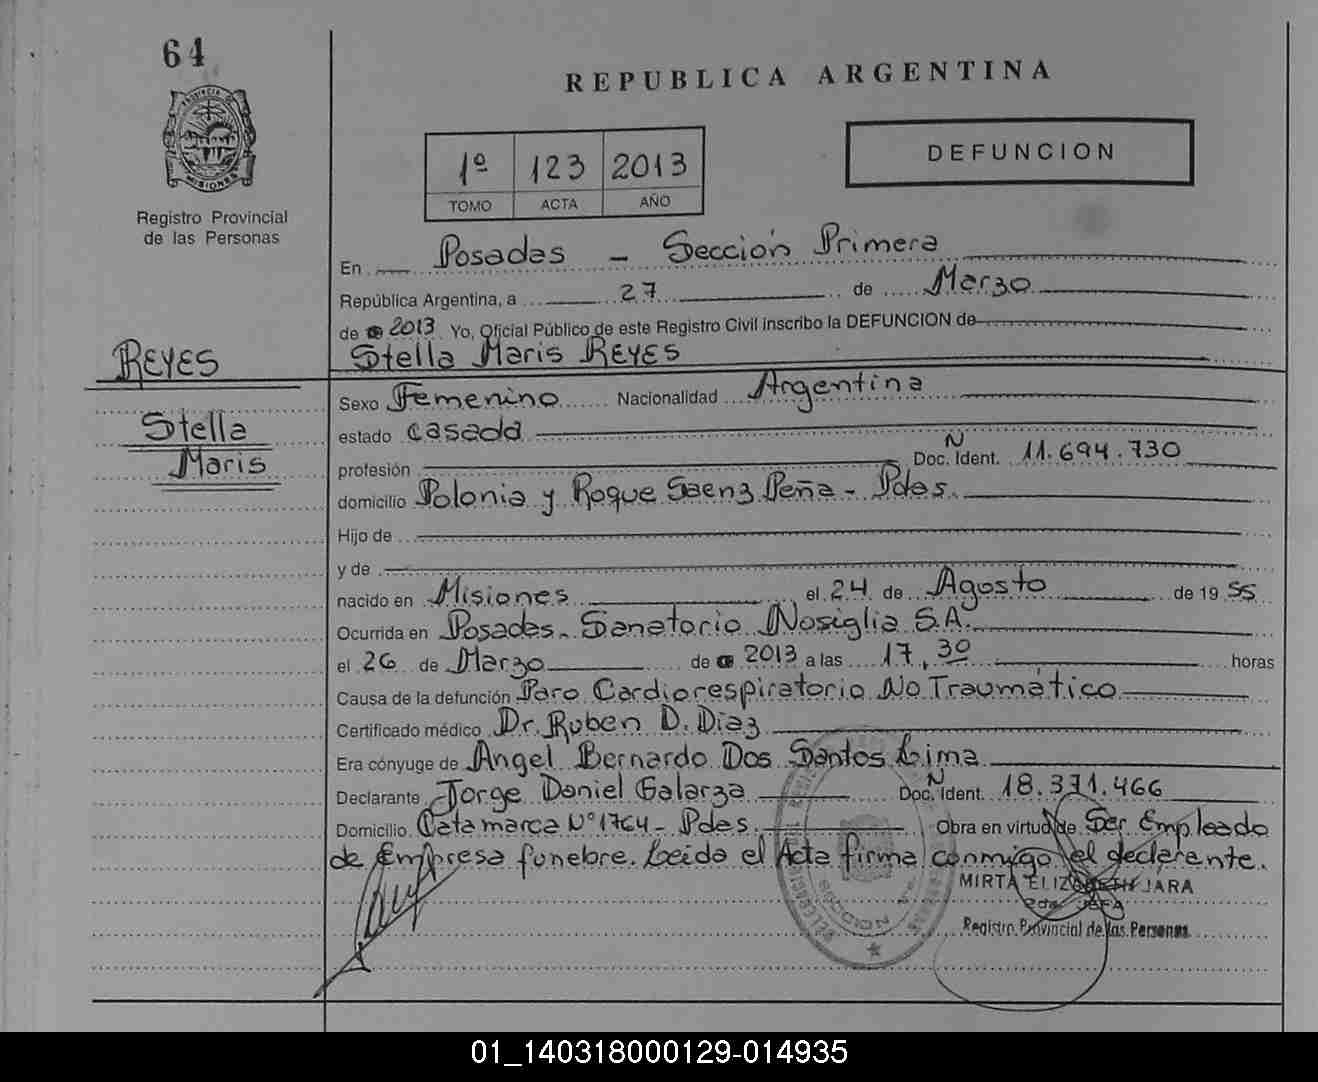 64
PROVINCIA DE
MISIONES
Registro Provincial
de las Personas
REPUBLICA ARGENTINA
1º 123 2013
TOMO ACTA AÑO
DEFUNCION
En Posadas - Sección Primera
República Argentina, a 27 de Marzo
de 2013 Yo, Oficial Público de este Registro Civil inscribo la DEFUNCION de
Stella Maris REYES
REYES
Stella
Maris
Sexo Femenino Nacionalidad Argentina
estado casada
profesión Doc. N Ident. 11.694.730
domicilio Polonia y Roque Saenz Peña - Pdas.
Hijo de
y de
nacido en Misiones el 24 de Agosto de 1955
Ocurrida en Posadas. Sanatorio Nosiglia S.A.
el 26 de Marzo de 2013 a las 17,30 horas
Causa de la defunción Paro Cardiorespiratorio No Traumático
Certificado médico Dr. Ruben D. Diaz
Era cónyuge de Angel Bernardo Dos Santos Lima
Declarante Jorge Daniel Galarza Doc. N Ident. 18.371.466
Domicilio Catamarca Nº 1764 - Pdas. Obra en virtud de Ser Empleado
de Empresa funebre. Leida el Acta firma conmigo el declarante.
MIRTA ELIZABETH JARA
2da. JEFA
Registro Provincial de las Personas
01_140318000129-014935